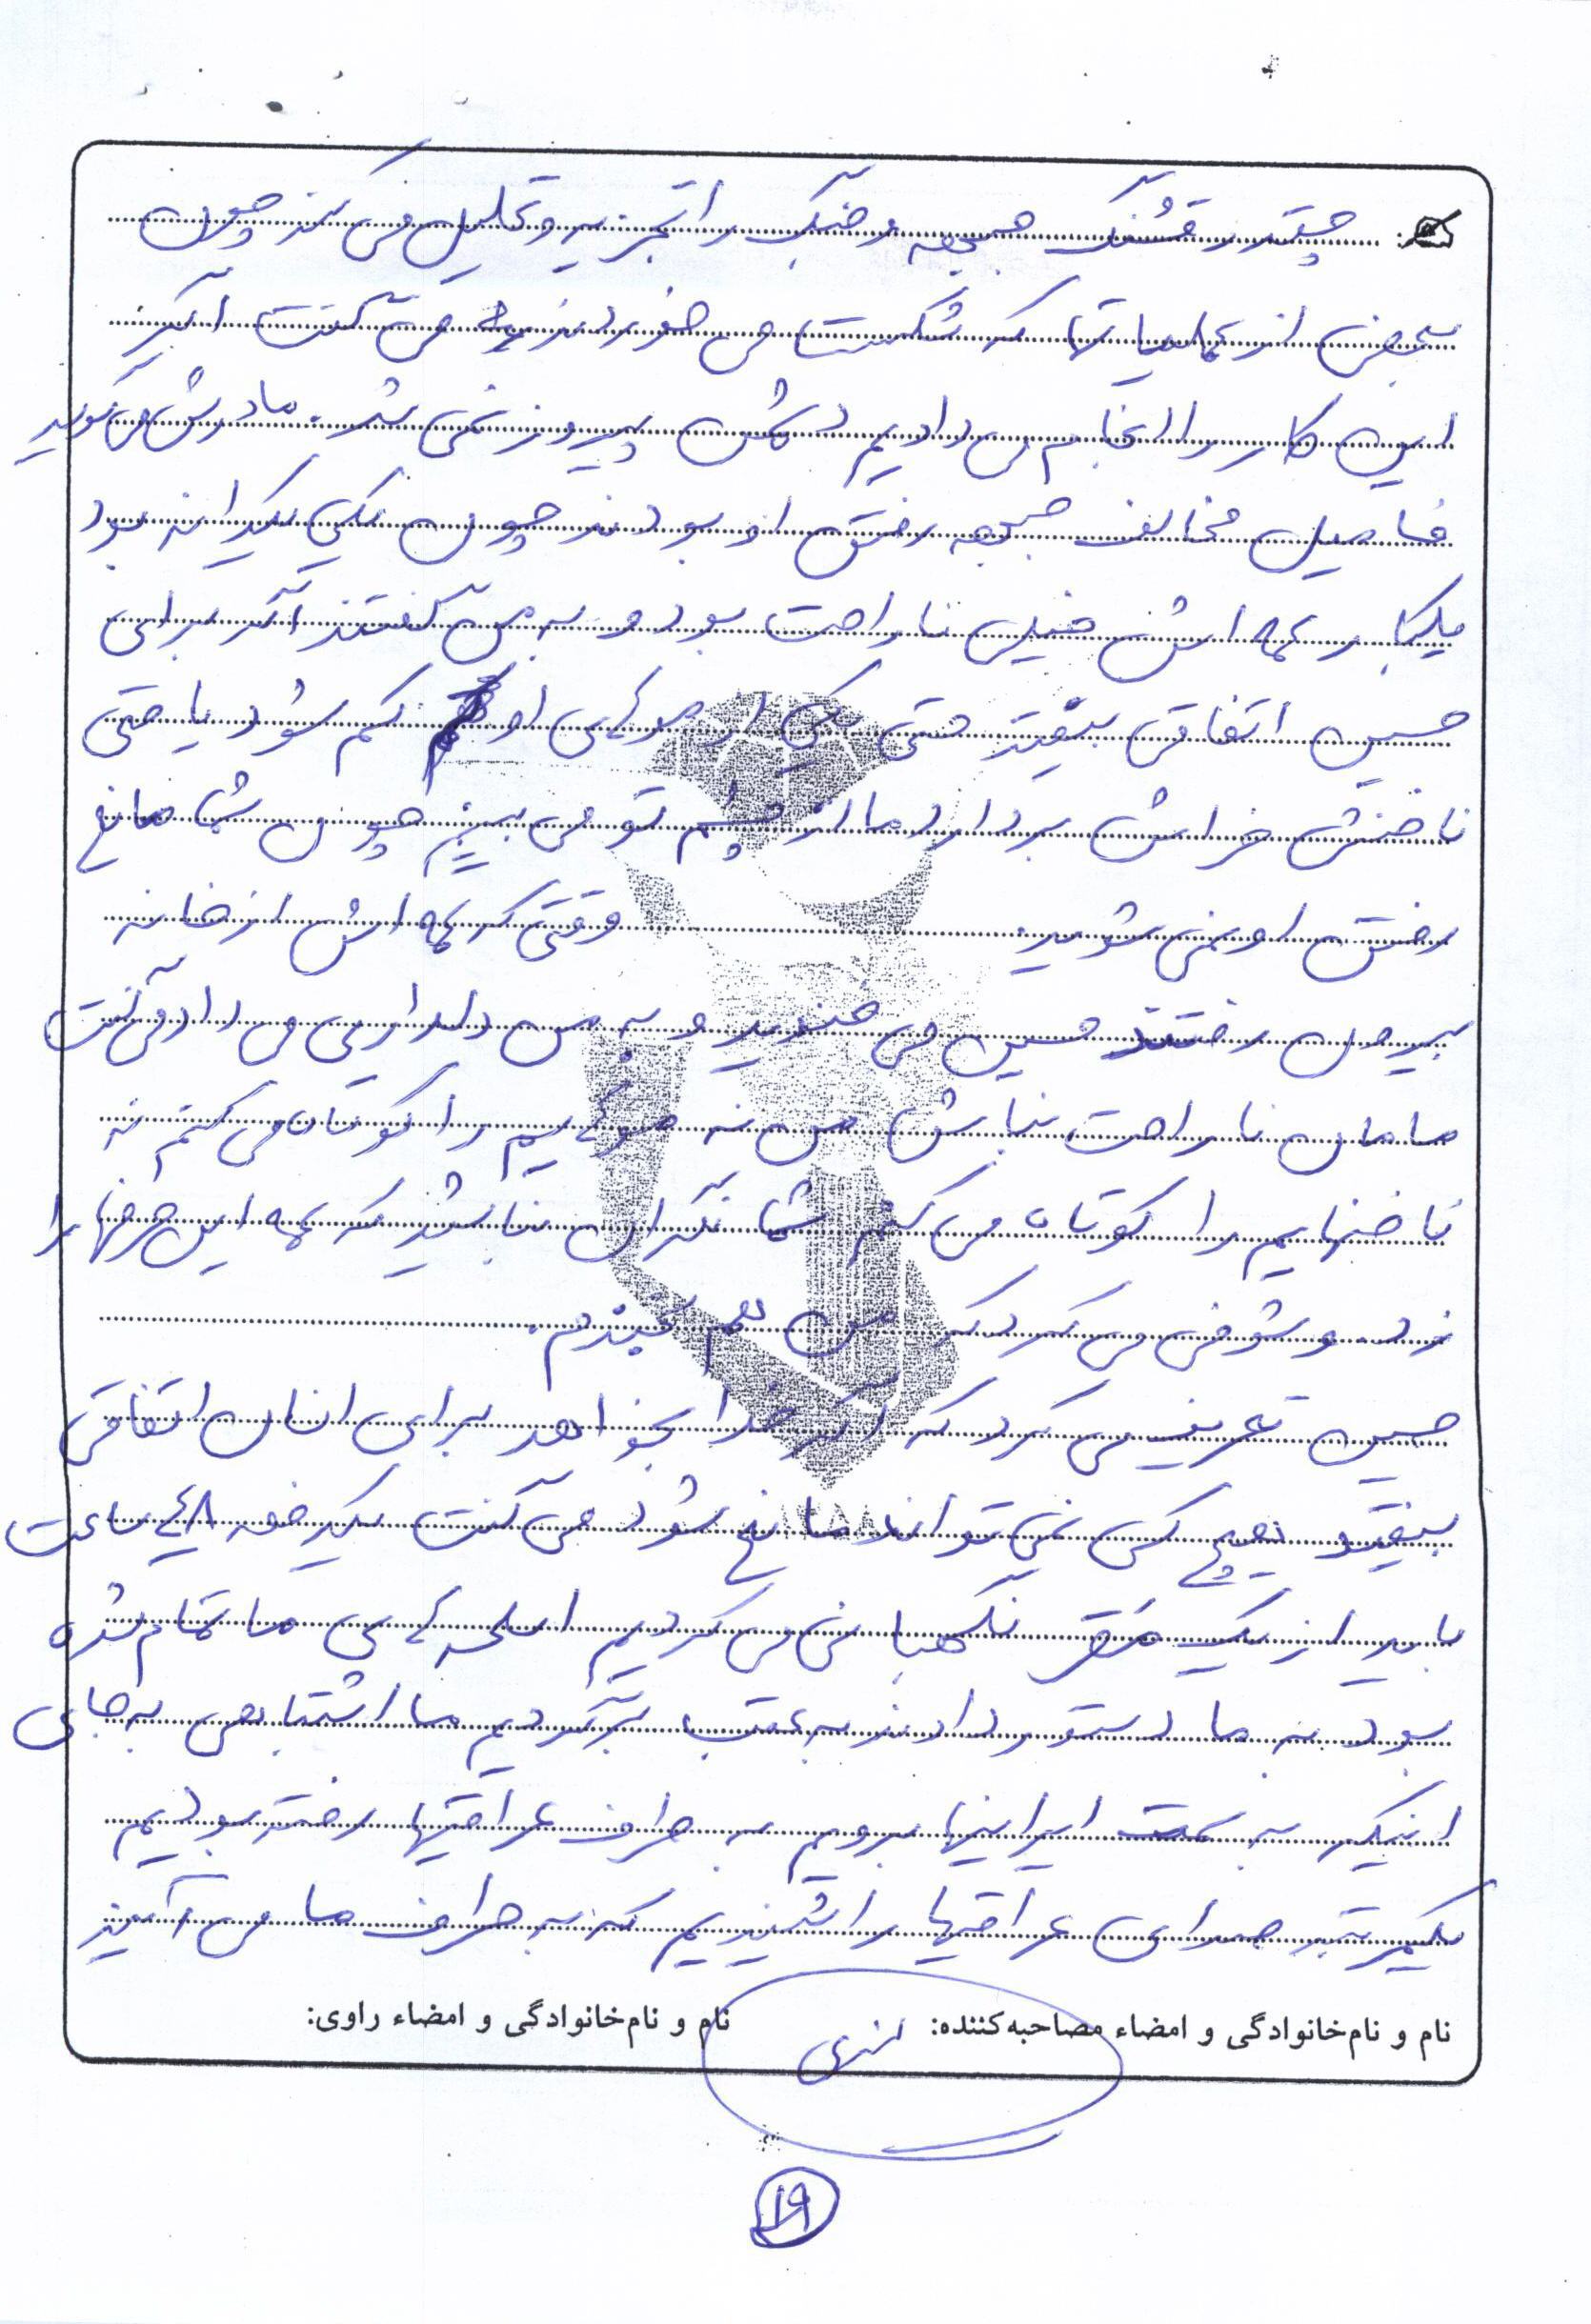 چقدر قشنگ جبهه و جنگ را تجزیه و تحلیل می کند چون
بعضی از عملیاتها که شکست می خوردند می گفت اگر
این کار را انجام می دادیم دشمن پیروز نمی شد. مادرش می گوید
فامیل مخالف جبهه رفتن او بودند چون یکی یکدانه بود
یکبار عمه اش خیلی ناراحت بود و به من گفتند اگر برای
حسین اتفاقی بیفتد حتی یکی از موهای او کم شود یا حتی
ناخنش خراش بردارد ما از چشم تو می بینیم چون شما مانع
رفتن او نمی شوید. وقتی که عمه اش از خانه
بیرون رفتند حسین می خندید و به من دلداری می داد می گفت
مامان ناراحت نباش من نه موهایم را کوتاه می کنم نه
ناخنهایم را کوتاه می کنم شما نگران نباشید که عمه این حرفها را
زد. و شوخی می کرد که من هم بخندم.
حسین تعریف می کرد که اگر خدا بخواهد برای انسان اتفاقی
بیفتد هیچ کس نمی تواند مانع شود می گفت یکدفعه ۴۸ ساعت
باید از یک مقر نگهبانی می کردیم اسلحه های ما تمام شده
بود به ما دستور دادند به عقب برگردیم ما اشتباهی به جای
اینکه به سمت ایرانیها برویم به طرف عراقیها رفته بودیم
یکمرتبه صدای عراقیها را شنیدیم که به طرف ما می آیند
نام و نام‌خانوادگی و امضاء مصاحبه‌کننده: نام و نام‌خانوادگی و امضاء راوی:
۱۹